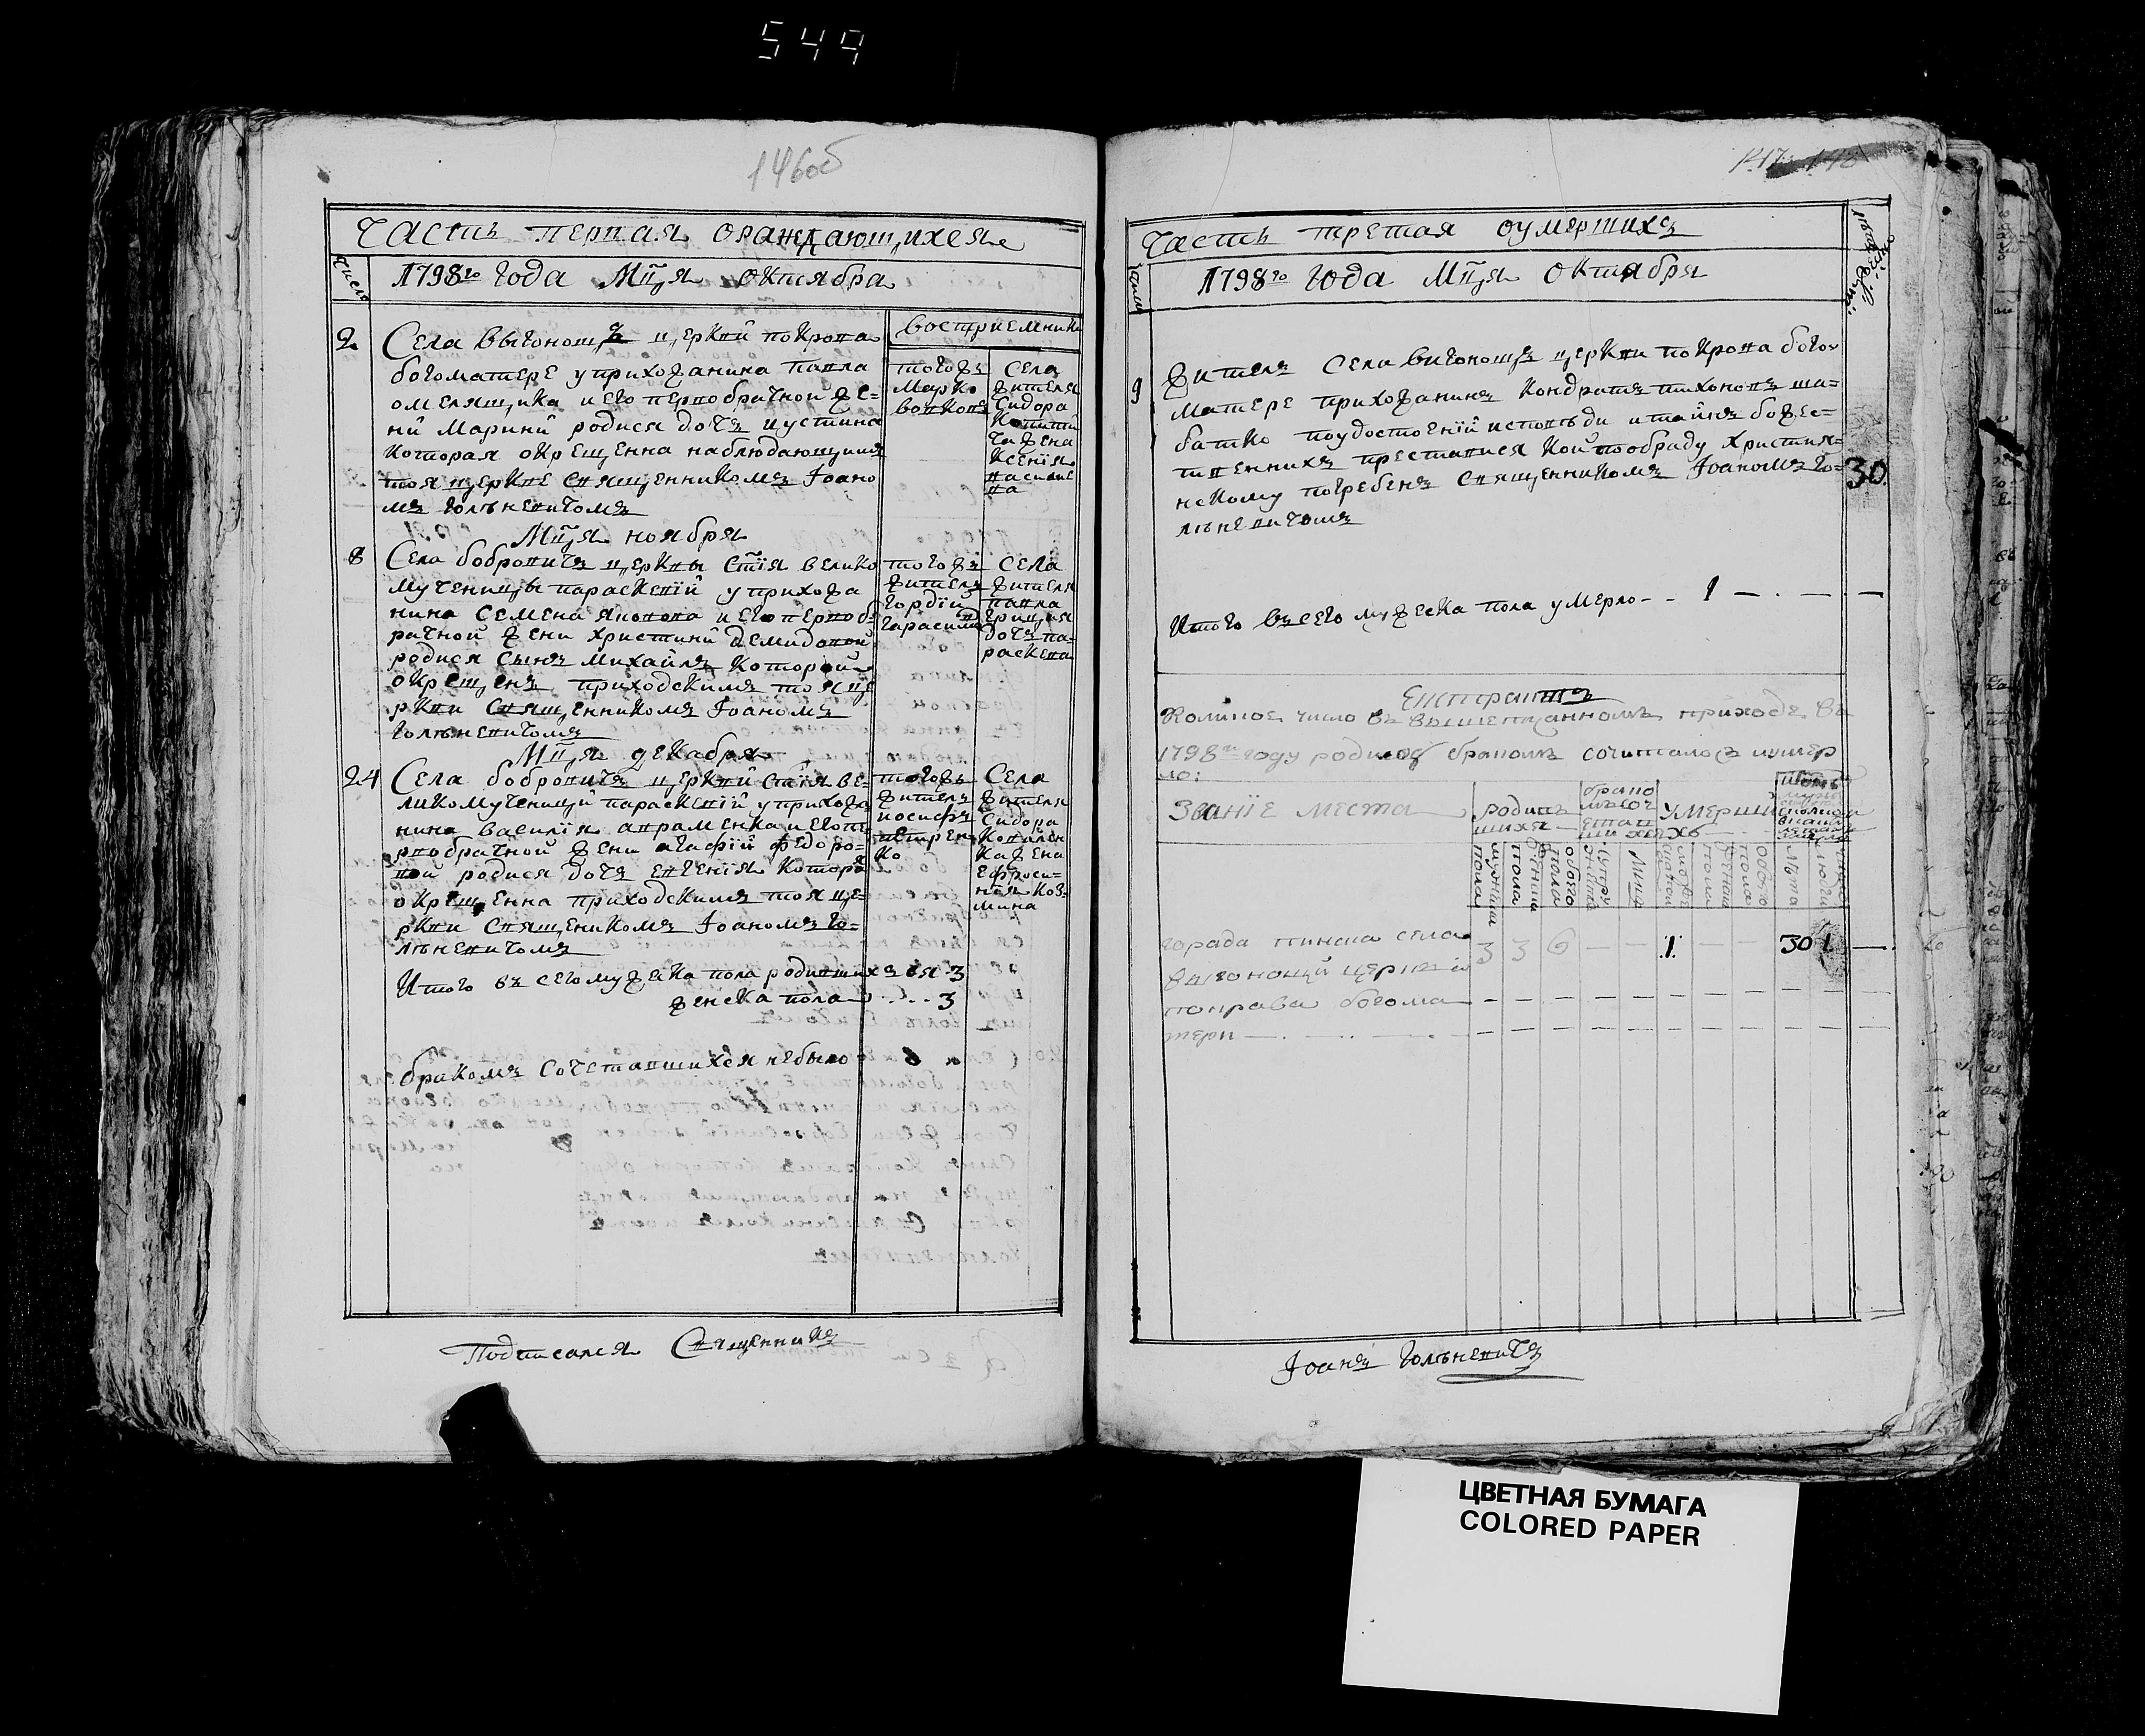 544
146об
Часть первая оражд҃ающихся
число
1798го года Мц҃а октября
2
Села выгонощъ церкви покрова
богоматере у прихожанина павла
омелящика и его первобрачной же-
ни марини родися дочъ иустина
которая окрещенна наблюдающимъ
тоя церкве священникомъ Іоано
мъ голѣневичомъ
восприемники
тогожъ
марко
вовкопъ
села
жителя
Сидора
жена
ксенїя
василіе
ва
Мц҃а ноября
8
Села бобровичъ церквы ст҃ія велико
мученицы параскевїй у прихожа
нина семена яковова и его первоб-
рачной жени христини демидовой
родися сынъ михайлъ которои
окрещенъ приходскимъ тоя це
ркви священникомъ Іоаномъ
голѣневичомъ
тогожъ
жителъ
гордїй
гарасимовъ
села
жителя
павла
грицука
дочъ па-
раскева
Мц҃а декабря
24
Села бобровичъ церквй ст҃ія ве-
ликомученицй параскевїй у прихожа
нина василїя авраменка и его пе
рвобрачной жени агафїй федоро-
вой родися дочъ евгенїя котора
окрещенна приходскимъ тоя це-
ркви священикомъ Іоаномъ го-
лѣневичомъ
тогожъ
жителъ
иосифъ
ко
села
жителя
Сидора
ковален
ка жена
ефроси-
нїя коз-
мина
Итого въсего мужеска пола родившихъся 3
женска пола - - - 3
бракомъ сочетавшихся небыло
Подписался Священникъ
147
Часть третая оумершихъ
число
1798го года Мц҃а октября
9
Жителъ села вигонощъ церкви покрова бого-
матере прихожанинъ кондратъ тихоновъ ша-
батко поудостоенїй исповѣди и тайнъ божес-
твенныхъ преставися кой пообраду христия-
нскому погребенъ священникомъ Іоаномъ го-
лѣневичомъ
30
Итого въсего мужеска пола умерло - - 1 — . — . —
Екстрактъ
Коликое число въ вышеписанномъ приходе въ
1798м году родилось бракомъ сочиталось иумер
ло:
Званїе места
родив
шихся
брако
мъ соч
етав
шихся
умерши
хъ
города пинска села
выгонощй церкви
покрава богома
тери
3 3 6 — — 1 — — 30 1 —
Іоанъ Голѣневичъ
ЦВЕТНАЯ БУМАГА
COLORED PAPER